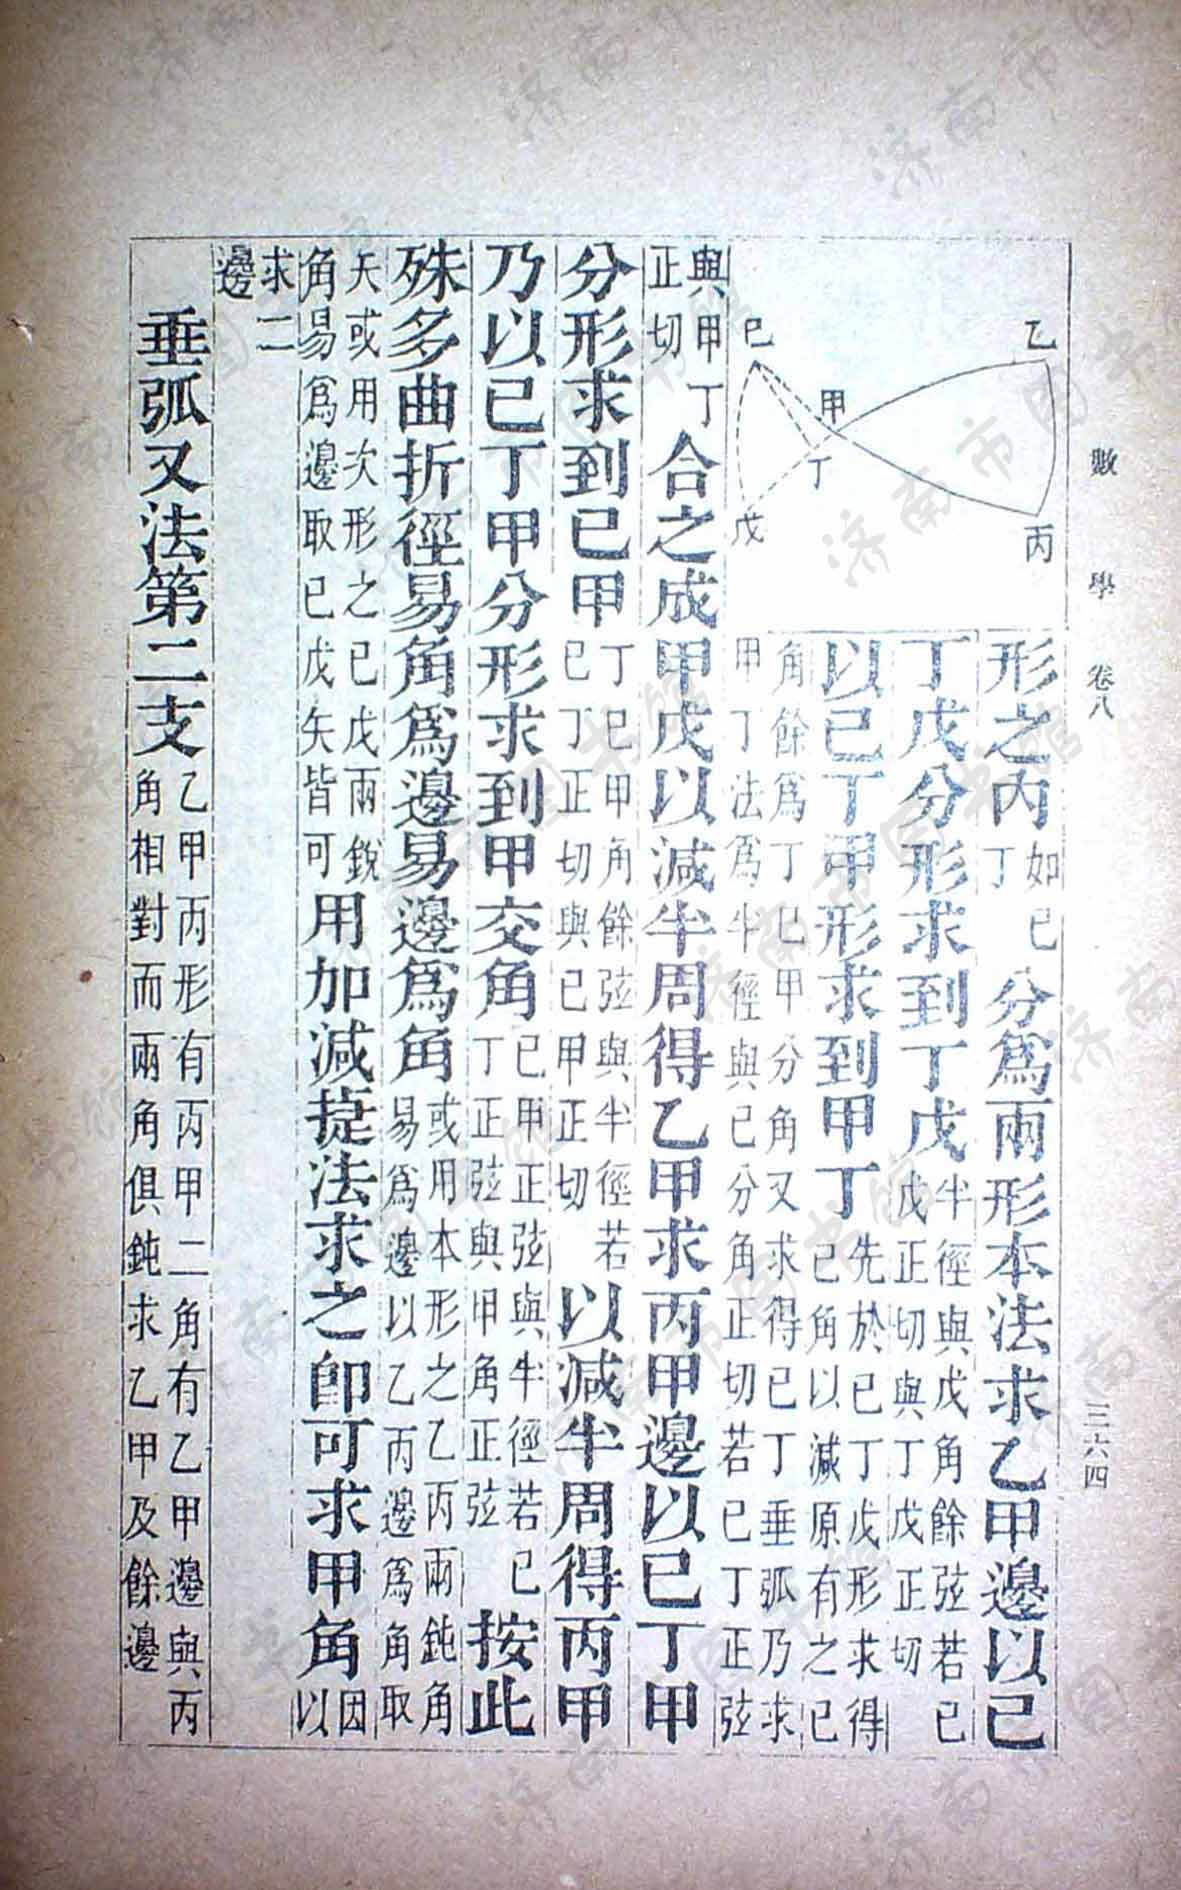 數學 卷八 三六四
乙
丙
甲
丁
己
戊
形之丙如己丁分爲兩形本法求乙甲邊以己
丁戊分形求到丁戊半徑與戊角餘弦若己戊正切與丁戊正切
以己丁甲形求到甲丁先於己丁戊形求得己角以減原有之己
角餘爲丁己甲分角又求得己丁垂弧乃求甲丁法爲半徑與己分角正切若己丁正弦
與甲丁正切合之成甲戊以減半周得乙甲求丙甲邊以己丁甲
分形求到己甲丁己甲角餘弦與半徑若己丁正切與己甲正切以減半周得丙甲
乃以己丁甲分形求到甲交角己甲正弦與半徑若己丁正弦與甲角正弦按此
殊多曲折徑易角爲邊易邊爲角或用本形之乙丙兩鈍角易爲邊以乙丙邊爲角取
天或用次形之己戊兩銳角易爲邊取己戊矢皆可用加減捷法求之卽可求甲角因以
求二邊
垂弧又法第二支乙甲丙形有丙甲二角有乙甲邊與丙角相對而兩角俱鈍求乙甲及餘邊
济南市图书馆